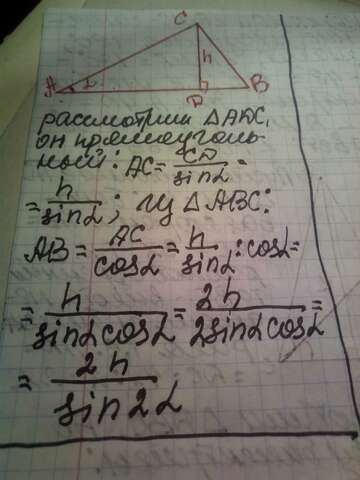 C
h
A α D B
рассмотрим △ADC,
он прямоуголь-
ный: AC = CD/sinα =
= h/sinα; из △ABC:
AB = AC/cosα = h/sinα : cosα =
= h/sinαcosα = 2h/2sinαcosα =
= 2h/sin2α